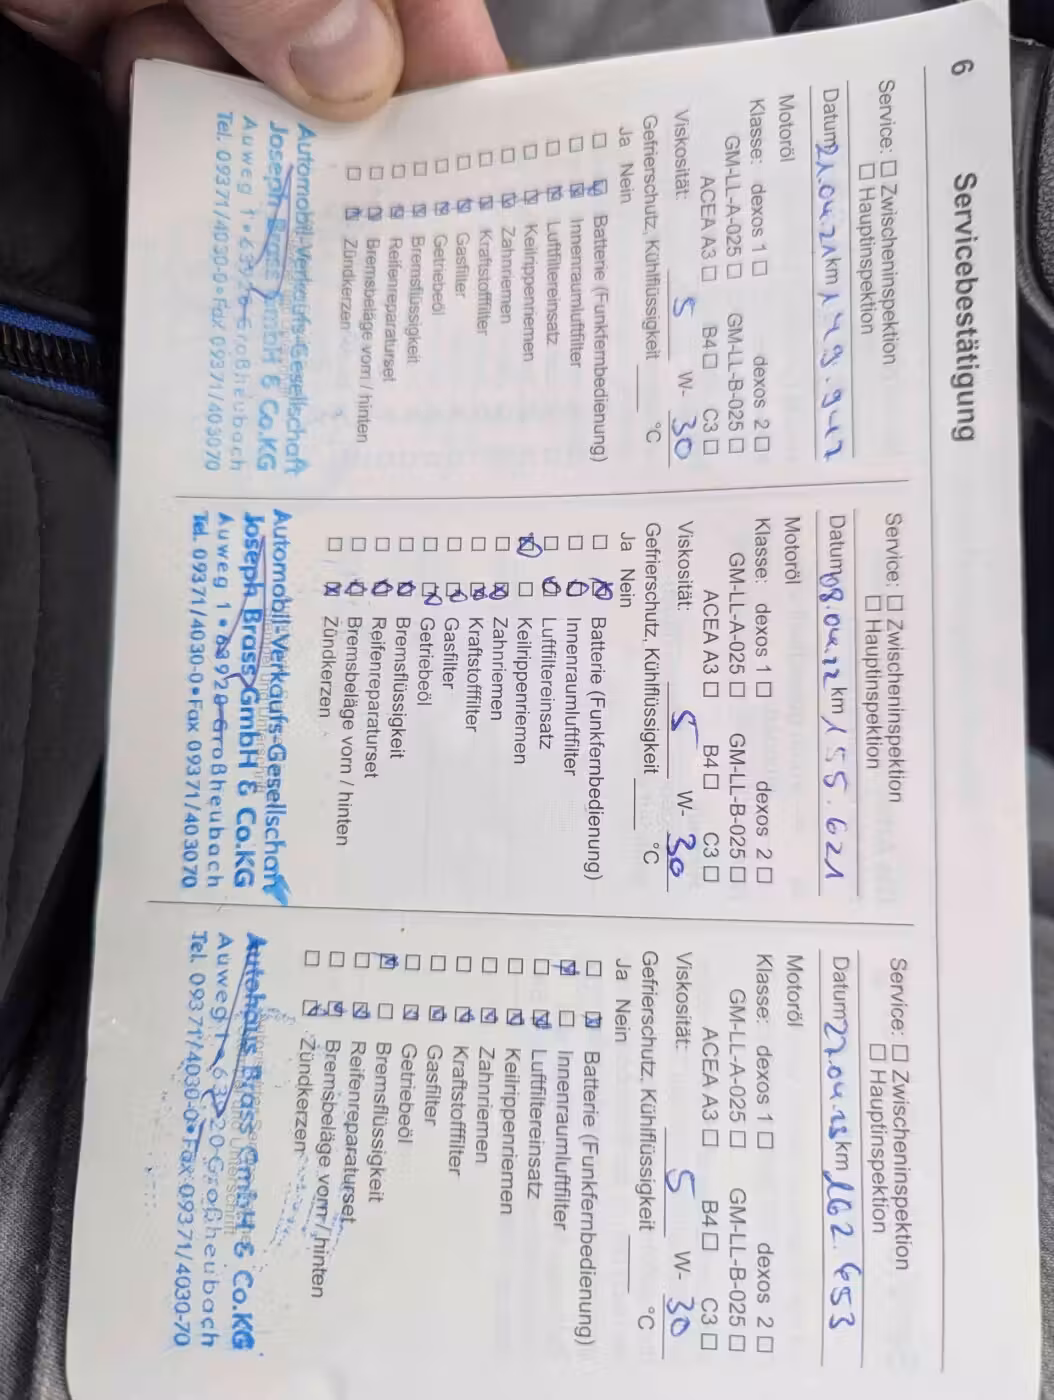 6 Servicebestätigung
Service: ☐ Zwischeninspektion
☐ Hauptinspektion
Datum 21.04.21 km 149.947
Motoröl
Klasse: dexos 1 ☐ dexos 2 ☐
GM-LL-A-025 ☐ GM-LL-B-025 ☐
ACEA A3 ☐ B4 ☐ C3 ☐
Viskosität: 5 W- 30
Gefrierschutz, Kühlflüssigkeit ____ °C
Ja Nein
☐ ☒ Batterie (Funkfernbedienung)
☐ ☒ Innenraumluftfilter
☐ ☒ Luftfiltereinsatz
☐ ☒ Keilrippenriemen
☐ ☒ Zahnriemen
☐ ☒ Kraftstofffilter
☐ ☒ Gasfilter
☐ ☒ Getriebeöl
☐ ☒ Bremsflüssigkeit
☐ ☒ Reifenreparaturset
☐ ☒ Bremsbeläge vorn / hinten
☐ ☒ Zündkerzen
Automobil-Verkaufs-Gesellschaft
Joseph Brass GmbH & Co.KG
Auweg 1 • 63920 Großheubach
Tel. 09371/4030-0 • Fax 09371/403070
Service: ☐ Zwischeninspektion
☐ Hauptinspektion
Datum 08.04.22 km 155.621
Motoröl
Klasse: dexos 1 ☐ dexos 2 ☐
GM-LL-A-025 ☐ GM-LL-B-025 ☐
ACEA A3 ☐ B4 ☐ C3 ☐
Viskosität: 5 W- 30
Gefrierschutz, Kühlflüssigkeit ____ °C
Ja Nein
☐ ☒ Batterie (Funkfernbedienung)
☐ ☒ Innenraumluftfilter
☐ ☒ Luftfiltereinsatz
☒ ☐ Keilrippenriemen
☐ ☒ Zahnriemen
☐ ☒ Kraftstofffilter
☐ ☒ Gasfilter
☐ ☒ Getriebeöl
☐ ☒ Bremsflüssigkeit
☐ ☒ Reifenreparaturset
☐ ☒ Bremsbeläge vorn / hinten
☐ ☒ Zündkerzen
Automobil-Verkaufs-Gesellschaft
Joseph Brass GmbH & Co.KG
Auweg 1 • 63920 Großheubach
Tel. 09371/4030-0 • Fax 09371/403070
Service: ☐ Zwischeninspektion
☐ Hauptinspektion
Datum 27.04.23 km 162.653
Motoröl
Klasse: dexos 1 ☐ dexos 2 ☐
GM-LL-A-025 ☐ GM-LL-B-025 ☐
ACEA A3 ☐ B4 ☐ C3 ☐
Viskosität: 5 W- 30
Gefrierschutz, Kühlflüssigkeit ____ °C
Ja Nein
☐ ☒ Batterie (Funkfernbedienung)
☒ ☐ Innenraumluftfilter
☐ ☒ Luftfiltereinsatz
☐ ☒ Keilrippenriemen
☐ ☒ Zahnriemen
☐ ☒ Kraftstofffilter
☐ ☒ Gasfilter
☐ ☒ Getriebeöl
☒ ☐ Bremsflüssigkeit
☐ ☒ Reifenreparaturset
☐ ☒ Bremsbeläge vorn / hinten
☐ ☒ Zündkerzen
Autohaus Brass GmbH & Co.KG
Auweg 1 • 63920 Großheubach
Tel. 09371/4030-0 • Fax 09371/4030-70